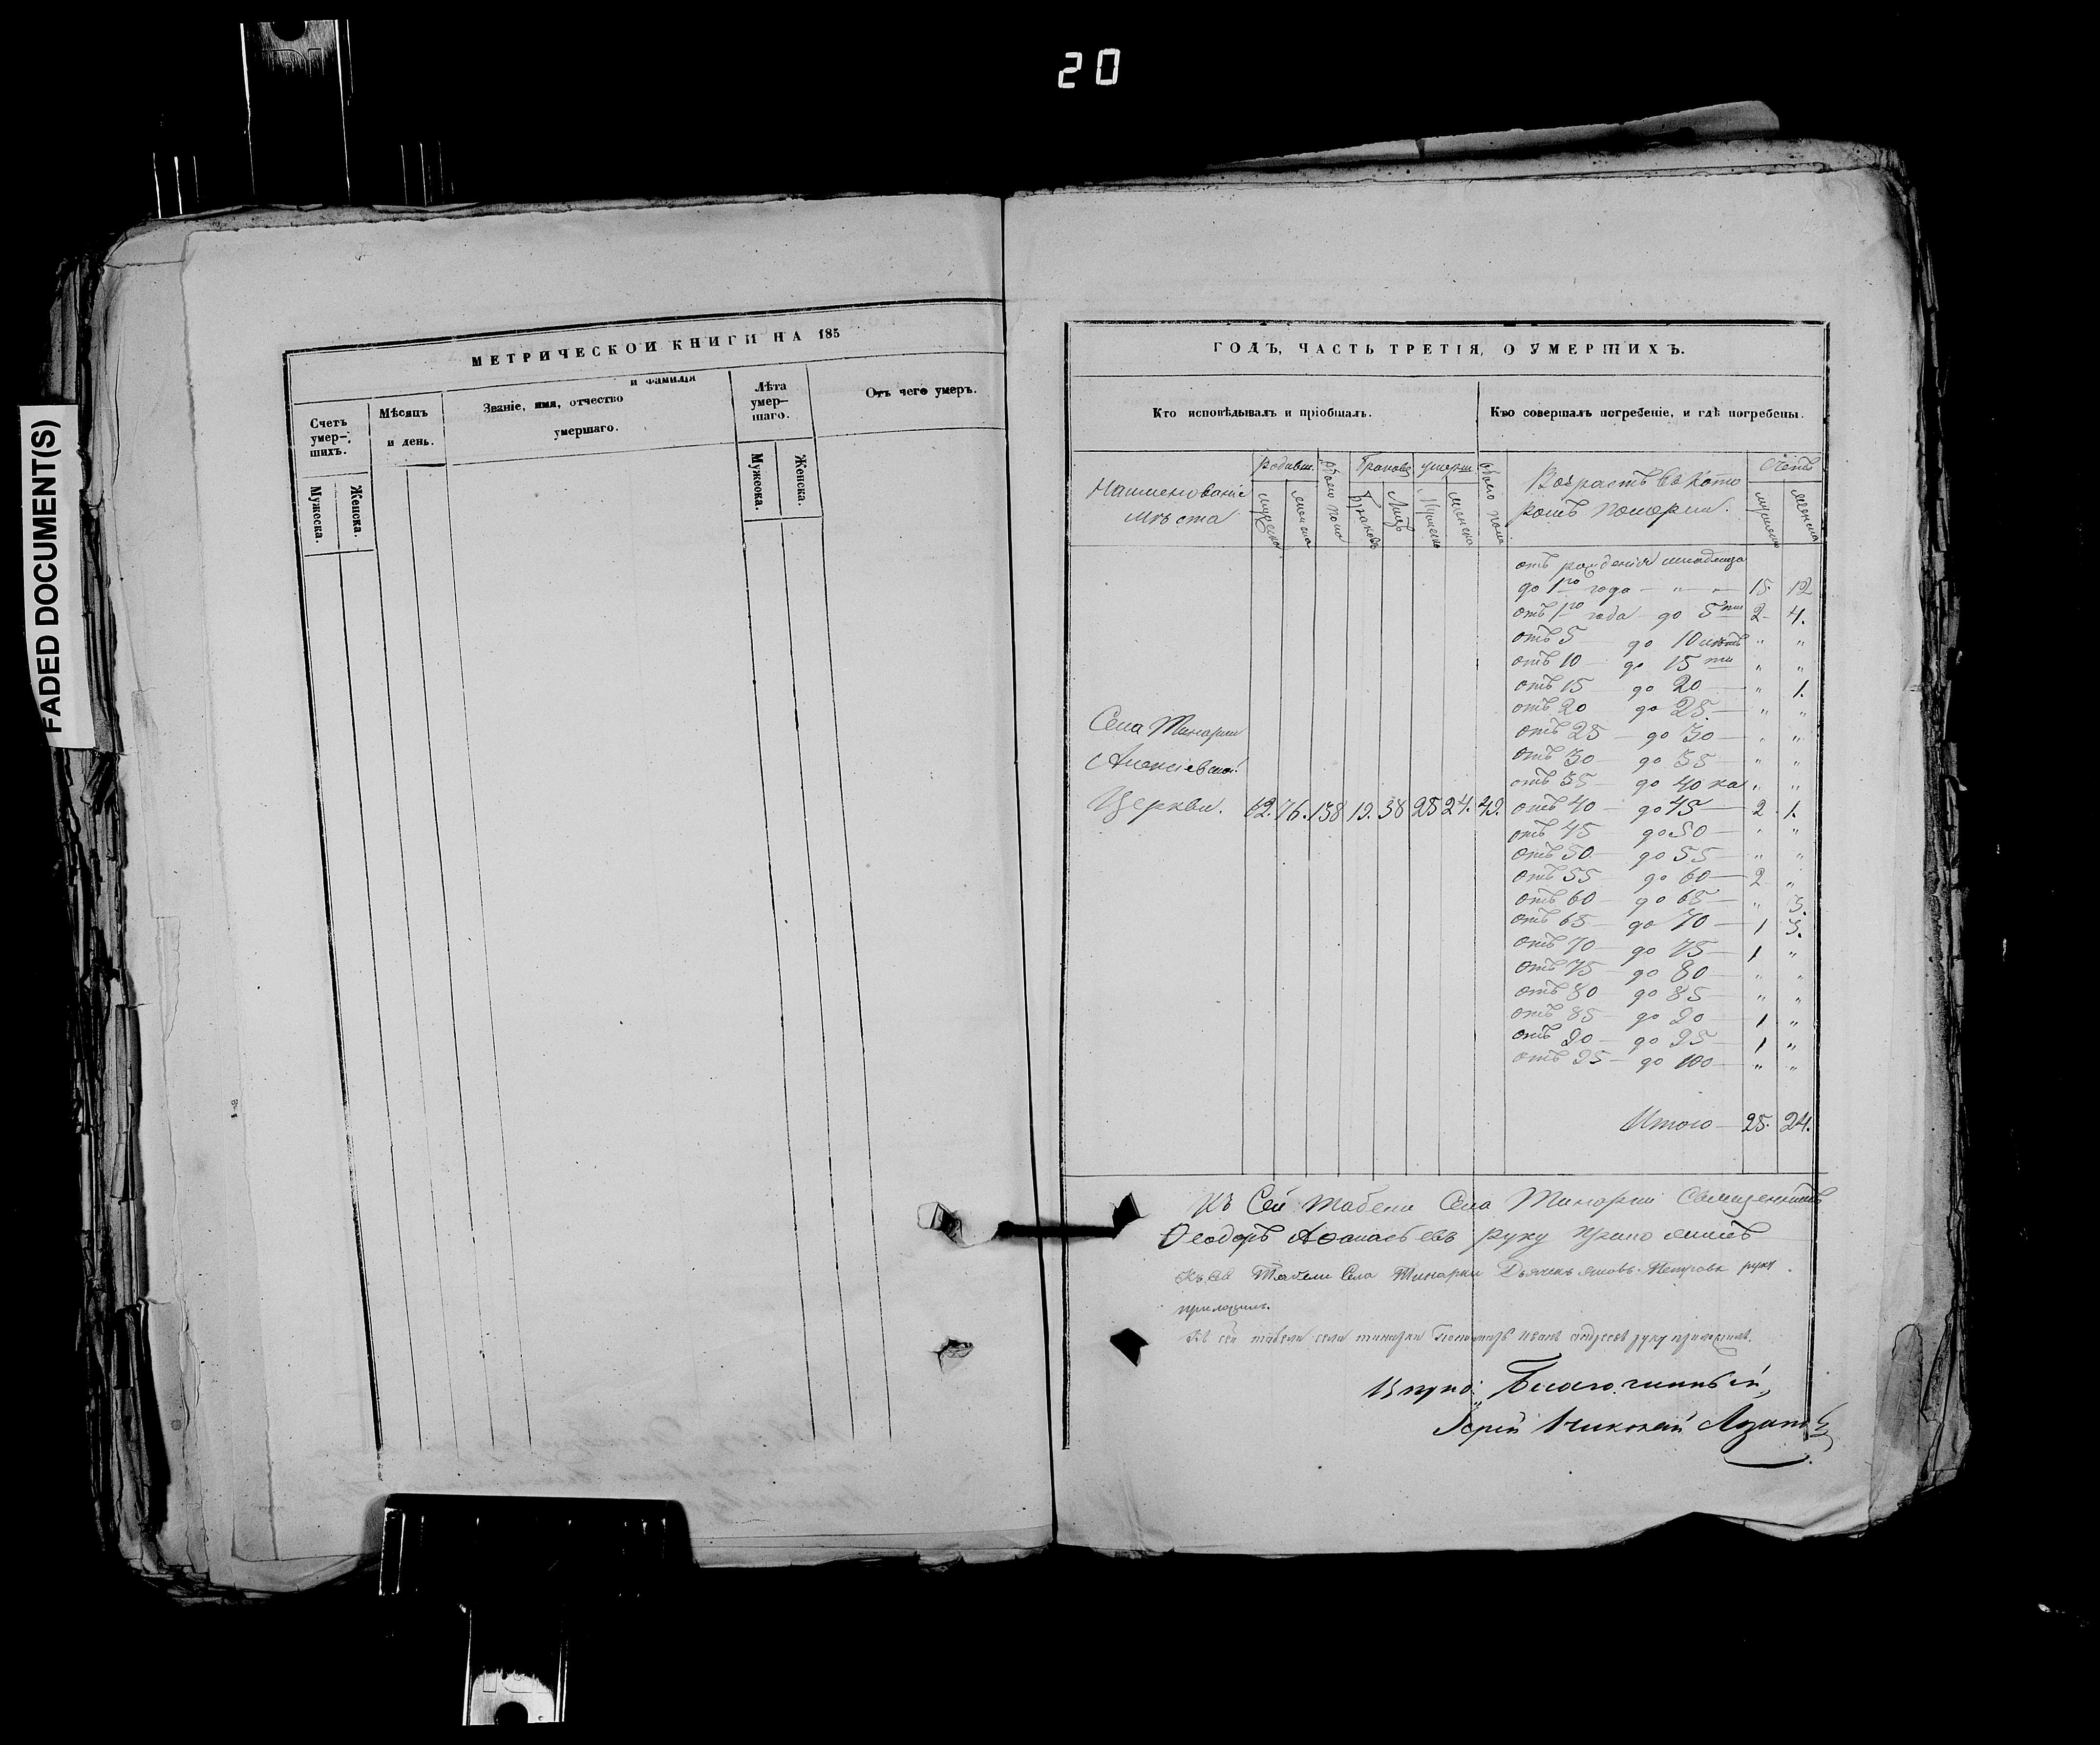 20
FADED DOCUMENT(S)
МЕТРИЧЕСКОЙ КНИГИ НА 185
Счетъ умер-шихъ.
Мужеска.
Женска.
Мѣсяцъ и день.
Званіе, имя, отчество и фамилія умершаго.
Лѣта умер-шаго.
Мужеска.
Женска.
Отъ чего умеръ.
ГОДЪ, ЧАСТЬ ТРЕТІЯ, О УМЕРШИХЪ.
Кто исповѣдывалъ и пріобщалъ.
Кто совершалъ погребеніе, и гдѣ погребены.
Наименованіе мѣста
Родивш.
мужеска
женска
обоего пола
Браковъ
Браковъ
Лицъ
умерш.
Мужеска
женска
обоего пола
Возрастъ въ кото
ромъ померли.
Счетъ
мужеска
женска
отъ рожденія младенца
до 1го года 15. 12
отъ 1го года до 5ти 2 4.
отъ 5 до 10 лѣтъ " "
отъ 10 до 15ти " "
отъ 15 до 20 " 1.
отъ 20 до 25 " "
отъ 25 до 30 " "
отъ 30 до 35 " "
отъ 35 до 40ка " "
отъ 40 до 45 2 1.
отъ 45 до 50 " "
отъ 50 до 55 " "
отъ 55 до 60 2 "
отъ 60 до 65 " 3.
отъ 65 до 70 1 3.
отъ 70 до 75 1 "
отъ 75 до 80 " "
отъ 80 до 85 " "
отъ 85 до 90 1 "
отъ 90 до 95 1 "
отъ 95 до 100 " "
Итого 25. 24.
Села Тинарки
Алексіевской
Церкви. 62. 76. 138 19. 38 25 24. 49.
Къ Сей табели Села Тинарки Священникъ
Ѳеодоръ Аѳанасьевъ руку приложилъ
Къ сей Табели Села Тинарки Дьячекъ Яковъ Петровъ руку
приложилъ.
Къ сей табели села тинарки Пономарь Иванъ андреевъ руку приложилъ.
Благочинный,
Іерей Николай